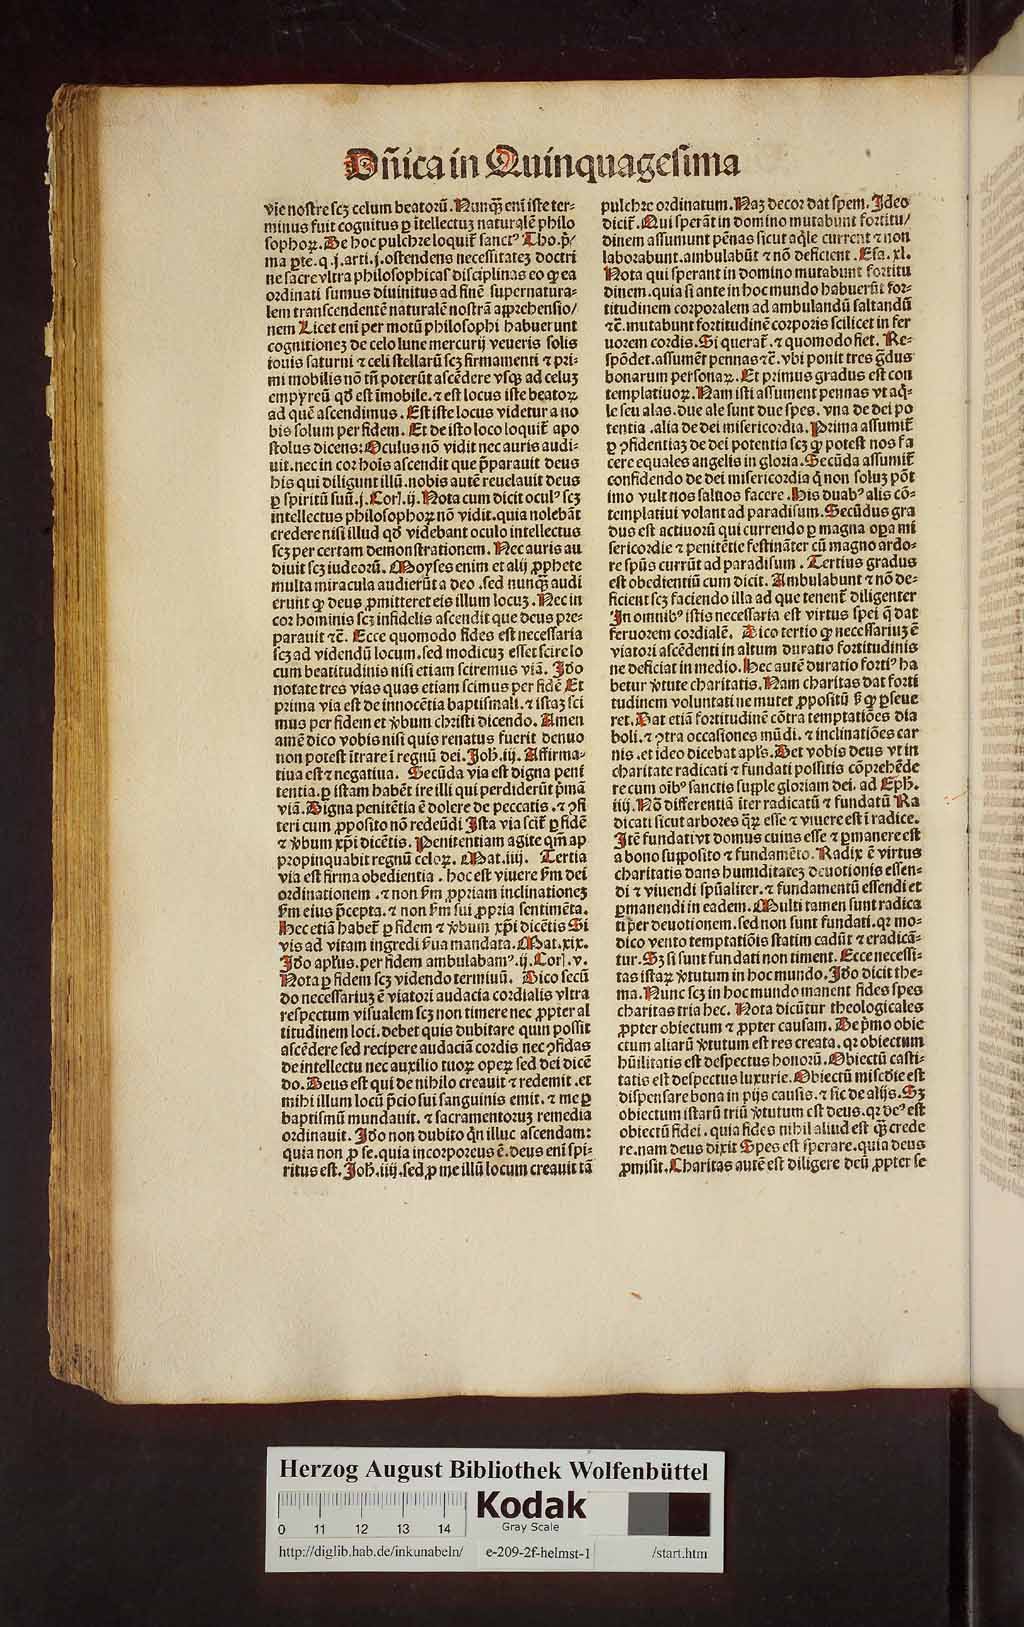 Dñica in Quinquagesima
vie nostre scꝫ celum beatoꝝ. Nunqꝫ eni iste ter-
minus fuit cognitus ꝑ ītellectuꝫ naturalē philo
sophoꝝ. De hoc pulchre loquit̃ sanctꝰ Tho. p̃/
ma ꝑte. q. j. arti. j. ostendens necessitateꝫ doctri
ne sacre vltra philosophicas disciplinas eo ꝙ ea
ordinati sumus diuinitus ad finē supernatura-
lem transcendentē naturalē nostrā apprehensio/
nem Licet eni per motū philosophi habuerunt
cognitioneꝫ de celo lune mercurij veueris solis
iouis saturni ⁊ celi stellarū scꝫ firmamenti ⁊ pri-
mi mobilis nō tñ poterūt ascēdere vsqꝫ ad celuꝫ
empyreū qd̓ est īmobile. ⁊ est locus iste beatoꝝ
ad quē ascendimus. Est iste locus videtur a no
bis solum per fidem. Et de isto loco loquit̃ apo
stolus dicens: Oculus nō vidit nec auris audi-
uit. nec in cor hois ascendit que p̄parauit deus
his qui diligunt illū. nobis autē reuelauit deus
ꝑ spiritū suū. j. Corī. ij. Nota cum dicit oculꝰ scꝫ
intellectus philosophoꝝ nō vidit. quia nolebāt
credere nisi illud qd̓ videbant oculo intellectus
scꝫ per certam demonstrationem. Nec auris au
diuit scꝫ iudeorū. Moyses enim et alij ꝓphete
multa miracula audierūt a deo. sed nunqꝫ audi
erunt ꝙ deus ꝓmitteret eis illum locuꝫ. Nec in
cor hominis scꝫ infidelis ascendit que deus pre-
parauit ⁊c̄. Ecce quomodo fides est necessaria
scꝫ ad videndū locum. sed modicuꝫ esset scire lo
cum beatitudinis nisi etiam sciremus viā. Jdo
notate tres vias quas etiam scimus per fidē Et
prima via est de innocētia baptismali. ⁊ istaꝫ sci
mus per fidem et ꝟbum christi dicendo. Amen
amē dico vobis nisi quis renatus fuerit denuo
non potest ītrare ī regnū dei. Joh̄. iij. Affirma-
tiua est ⁊ negatiua. Secūda via est digna peni
tentia. ꝑ istam habēt ire illi qui perdiderūt p̄mā
viā. Digna penitētia ē dolere de peccatis. ⁊ ꝯfi
teri cum ꝓposito nō redeūdi Jsta via scit̃ ꝑ fidē
⁊ ꝟbum xp̄i dicētis. Penitentiam agite qm̄ ap
propinquabit regnū celoꝝ. Mat. iiij. Tertia
via est firma obedientia. hoc est viuere s̄m dei
ordinationem. ⁊ non s̄m ꝓpriam inclinationeꝫ
s̄m eius p̄cepta. ⁊ non s̄m sui ꝓpria sentimēta.
Hec etiā habet̃ ꝑ fidem ⁊ ꝟbum xp̄i dicētis Si
vis ad vitam ingredi s̄ua mandata. Mat. xix.
Jdo aplus. per fidem ambulabamꝰ. ij. Corī. v.
Nota ꝑ fidem scꝫ videndo termiuū. Dico secū
do necessariuꝫ ē viatori audacia cordialis vltra
respectum visualem scꝫ non timere nec ꝓpter al
titudinem loci. debet quis dubitare quin possit
ascēdere sed recipere audaciā cordis nec ꝯfidas
de intellectu nec auxilio tuoꝝ opeꝝ sed dei dicē
do. Deus est qui de nihilo creauit ⁊ redemit. et
mihi illum locū p̄cio sui sanguinis emit. ⁊ me ꝑ
baptismū mundauit. ⁊ sacramentoruꝫ remedia
ordinauit. Jdo non dubito qn̄ illuc ascendam:
quia non ꝓ se. quia incorporeus ē. deus eni spi-
ritus est. Joh̄. iiij. sed ꝓ me illū locum creauit tā
pulchre ordinatum. Naꝫ decor dat spem. Jdeo
dicit̃. Qui sperāt in domino mutabunt fortitu/
dinem assumunt pēnas sicut aq̄le current ⁊ non
laborabunt. ambulabūt ⁊ nō deficient. Esa. xl.
Nota qui sperant in domino mutabunt fortitu
dinem. quia si ante in hoc mundo habuerūt for-
titudinem corporalem ad ambulandū saltandū
⁊c̄. mutabunt fortitudinē corporis scilicet in fer
uorem cordis. Si querat̃. ⁊ quomodo fiet. Re-
spōdet. assumēt pennas ⁊c̄. vbi ponit tres g̃dus
bonarum personaꝝ. Et primus gradus est con
templatiuoꝝ. Nam isti assument pennas vt aq̄-
le seu alas. due ale sunt due spes. vna de dei po
tentia. alia de dei misericordia. Prima assumit̃
ꝑ ꝯfidentiaꝫ de dei potentia scꝫ ꝙ potest nos fa
cere equales angelis in gloria. Secūda assumit̃
confidendo de dei misericordia q̄ non soluꝫ pōt
imo vult nos saluos facere. His duabꝰ alis cō-
templatiui volant ad paradisum. Secūdus gra
dus est actiuorū qui currendo ꝑ magna oꝑa mi
sericordie ⁊ penitētie festināter cū magno ardo-
re spūs currūt ad paradisum. Tertius gradus
est obedientiū cum dicit. Ambulabunt ⁊ nō de-
ficient scꝫ faciendo illa ad que tenent̃ diligenter
Jn omnibꝰ istis necessaria est virtus spei q̄ dat
feruorem cordialē. Dico tertio ꝙ necessariuꝫ ē
viatori ascēdenti in altum duratio fortitudinis
ne deficiat in medio. Hec autē duratio fortiꝰ ha
betur ꝟtute charitatis. Nam charitas dat forti
tudinem voluntati ne mutet ꝓpositū s̄ ꝙ ꝑseue
ret. Dat etiā fortitudinē cōtra temptatiōes dia
boli. ⁊ ꝯtra occasiones mūdi. ⁊ inclinatiōes car
nis. et ideo dicebat apl's. Det vobis deus vt in
charitate radicati ⁊ fundati possitis cōprehēde
re cum oībꝰ sanctis supple gloriam dei. ad Eph̄.
iij. Nō differentiā īter radicatū ⁊ fundatū Ra
dicati sicut arbores qꝝ esse ⁊ viuere est ī radice.
Jtē fundati vt domus cuius esse ⁊ ꝑmanere est
a bono supposito ⁊ fundamēto. Radix ē virtus
charitatis dans humiditateꝫ deuotionis essen-
di ⁊ viuendi spūaliter. ⁊ fundamentū essendi et
ꝑmanendi in eadem. Multi tamen sunt radica
ti per deuotionem. sed non sunt fundati. qꝛ mo-
dico vento temptatiōis statim cadūt ⁊ eradicā-
tur. Sꝫ si sunt fundati non timent. Ecce necessi-
tas istaꝝ ꝟtutum in hoc mundo. Jdo dicit the-
ma. Nunc scꝫ in hoc mundo manent fides spes
charitas tria hec. Nota dicūtur theologicales
ꝓpter obiectum ⁊ ꝓpter causam. De p̄mo obie
ctum aliarū ꝟtutum est res creata. qꝛ obiectum
hūilitatis est despectus honorū. Obiectū casti-
tatis est despectus luxurie. Obiectū miscd̓ie est
dispensare bona in pijs causis. ⁊ sic de alijs. Sꝫ
obiectum istarū triū ꝟtutum est deus. qꝛ deꝰ est
obiectū fidei. quia fides nihil aliud est qꝫ crede
re. nam deus dixit Spes est sperare. quia deus
ꝓmisit. Charitas autē est diligere deū ꝓpter se
Herzog August Bibliothek Wolfenbüttel
0 11 12 13 14
Kodak
Gray Scale
http://diglib.hab.de/inkunabeln/ e-209-2f-helmst-1 /start.htm